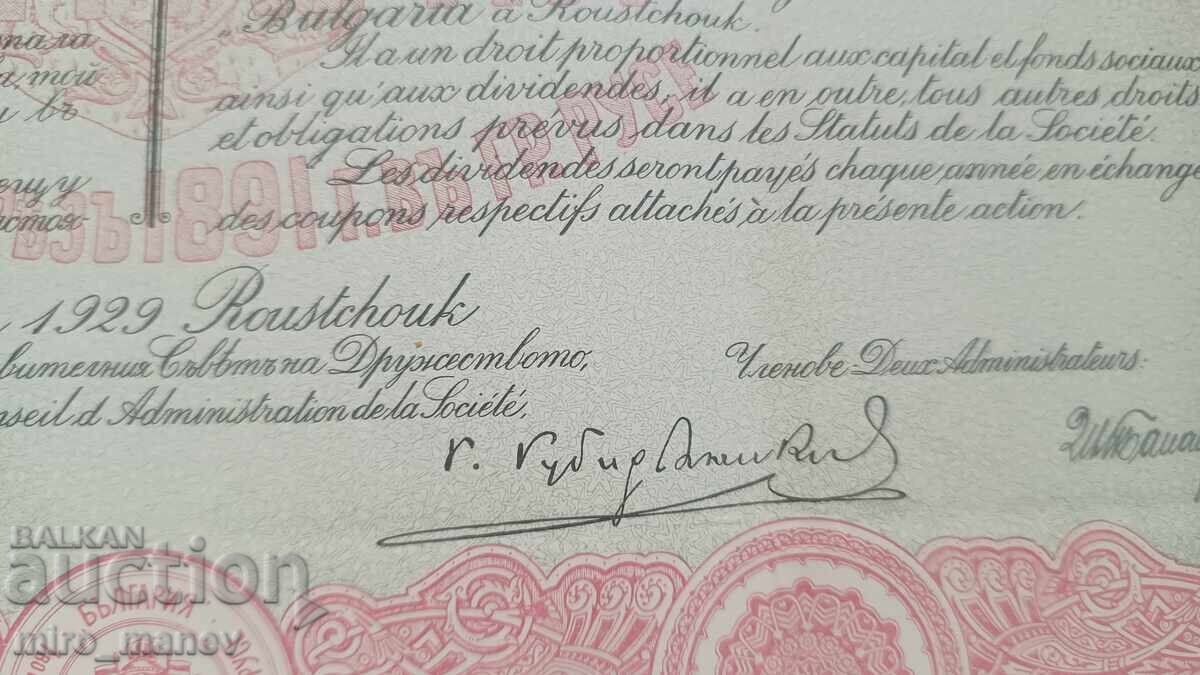 „Bulgaria à Roustchouk.
Il a un droit proportionnel aux capital et fonds sociaux
ainsi qu'aux dividendes, il a en outre, tous autres droits
et obligations prévus dans les Statuts de la Société.
Les dividendes seront payés chaque année en échange
des coupons respectifs attachés à la présente action.
той
въ
1891 Г. ВЪ ГР. РУСЕ
1929 Roustchouk
вителния Съветъ на Дружеството,
nseil d'Administration de la Société,
Членове Deux Administrateurs:
БЪЛГАРИЯ
BALKAN
auction
miro_manev